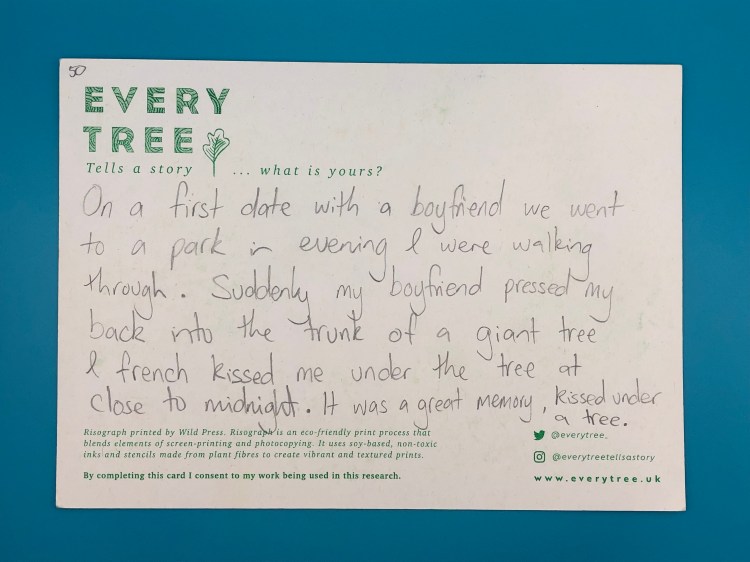 50
EVERY
TREE
Tells a story ... what is yours?
On a first date with a boyfriend we went
to a park in evening & were walking
through. Suddenly my boyfriend pressed my
back into the trunk of a giant tree
& french kissed me under the tree at
close to midnight. It was a great memory, kissed under
a tree.
Risograph printed by Wild Press. Risograph is an eco-friendly print process that
blends elements of screen-printing and photocopying. It uses soy-based, non-toxic
inks and stencils made from plant fibres to create vibrant and textured prints.
By completing this card I consent to my work being used in this research.
@everytree_
@everytreetellsastory
www.everytree.uk